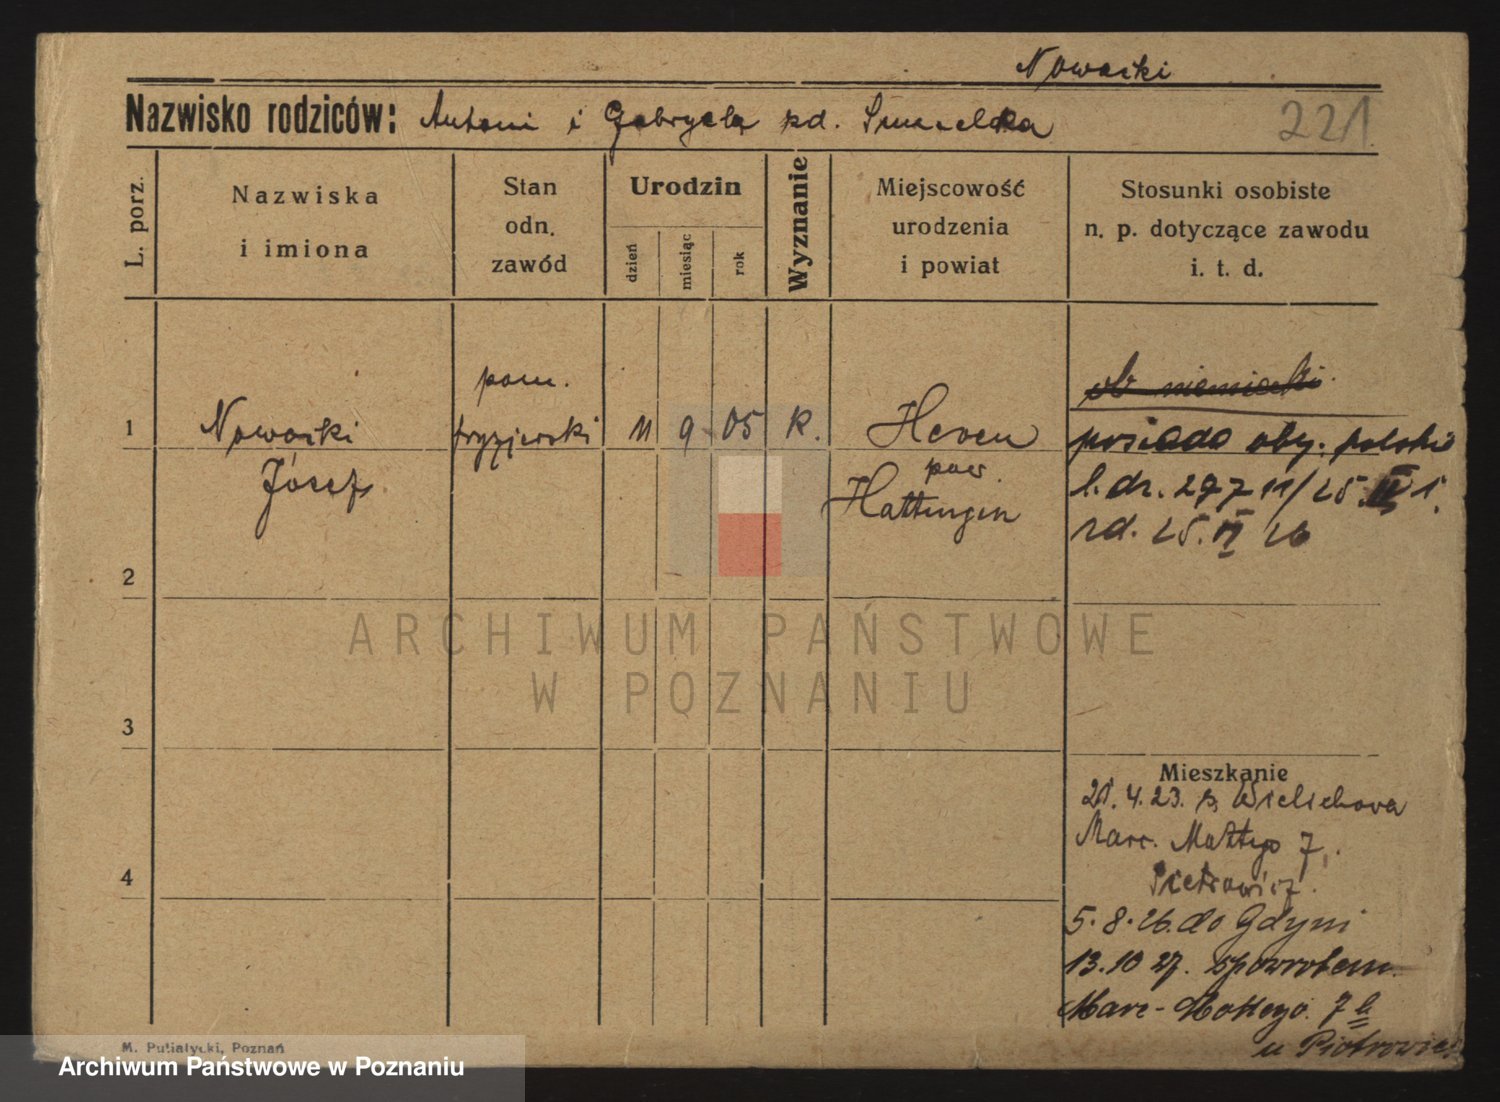 Nowacki
Nazwisko rodziców: Antoni i Gabryela pd. Smucelka
221
L. porz.
Nazwiska
i imiona
Stan
odn.
zawód
Urodzin
dzień
miesiąc
rok
Wyznanie
Miejscowość
urodzenia
i powiat
Stosunki osobiste
n. p. dotyczące zawodu
i. t. d.
1
Nowacki
Józef
pom.
fryzjerski
11
9
05
k.
Heven
pow.
Hattingen
ob niemiecki
posiada oby. polskie
l. dr. 29711/25
rd. 25. VI 26
2
3
4
Mieszkanie
21. 4. 23. z Wielichowa
Marc. Mottego 7
Pietrowicz.
5. 8. 26. do Gdyni
13. 10 27. spowrotem
Marc-Mottego. 7 b
u Piotrowicz
ARCHIWUM PAŃSTWOWE
W POZNANIU
M. Putiatycki, Poznań
Archiwum Państwowe w Poznaniu